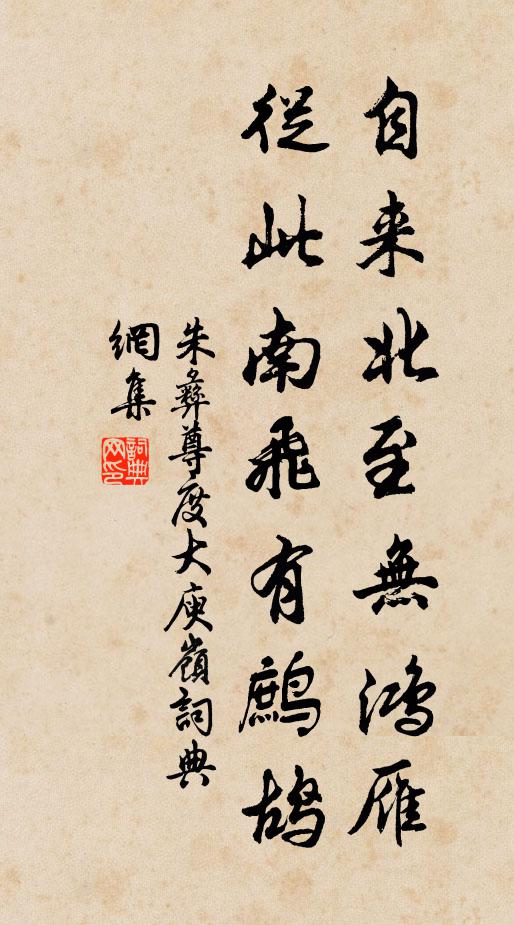 自来北至無鴻雁
從此南飛有鷓鴣
朱彝尊度大庾嶺詞典
網集
詞典
网印